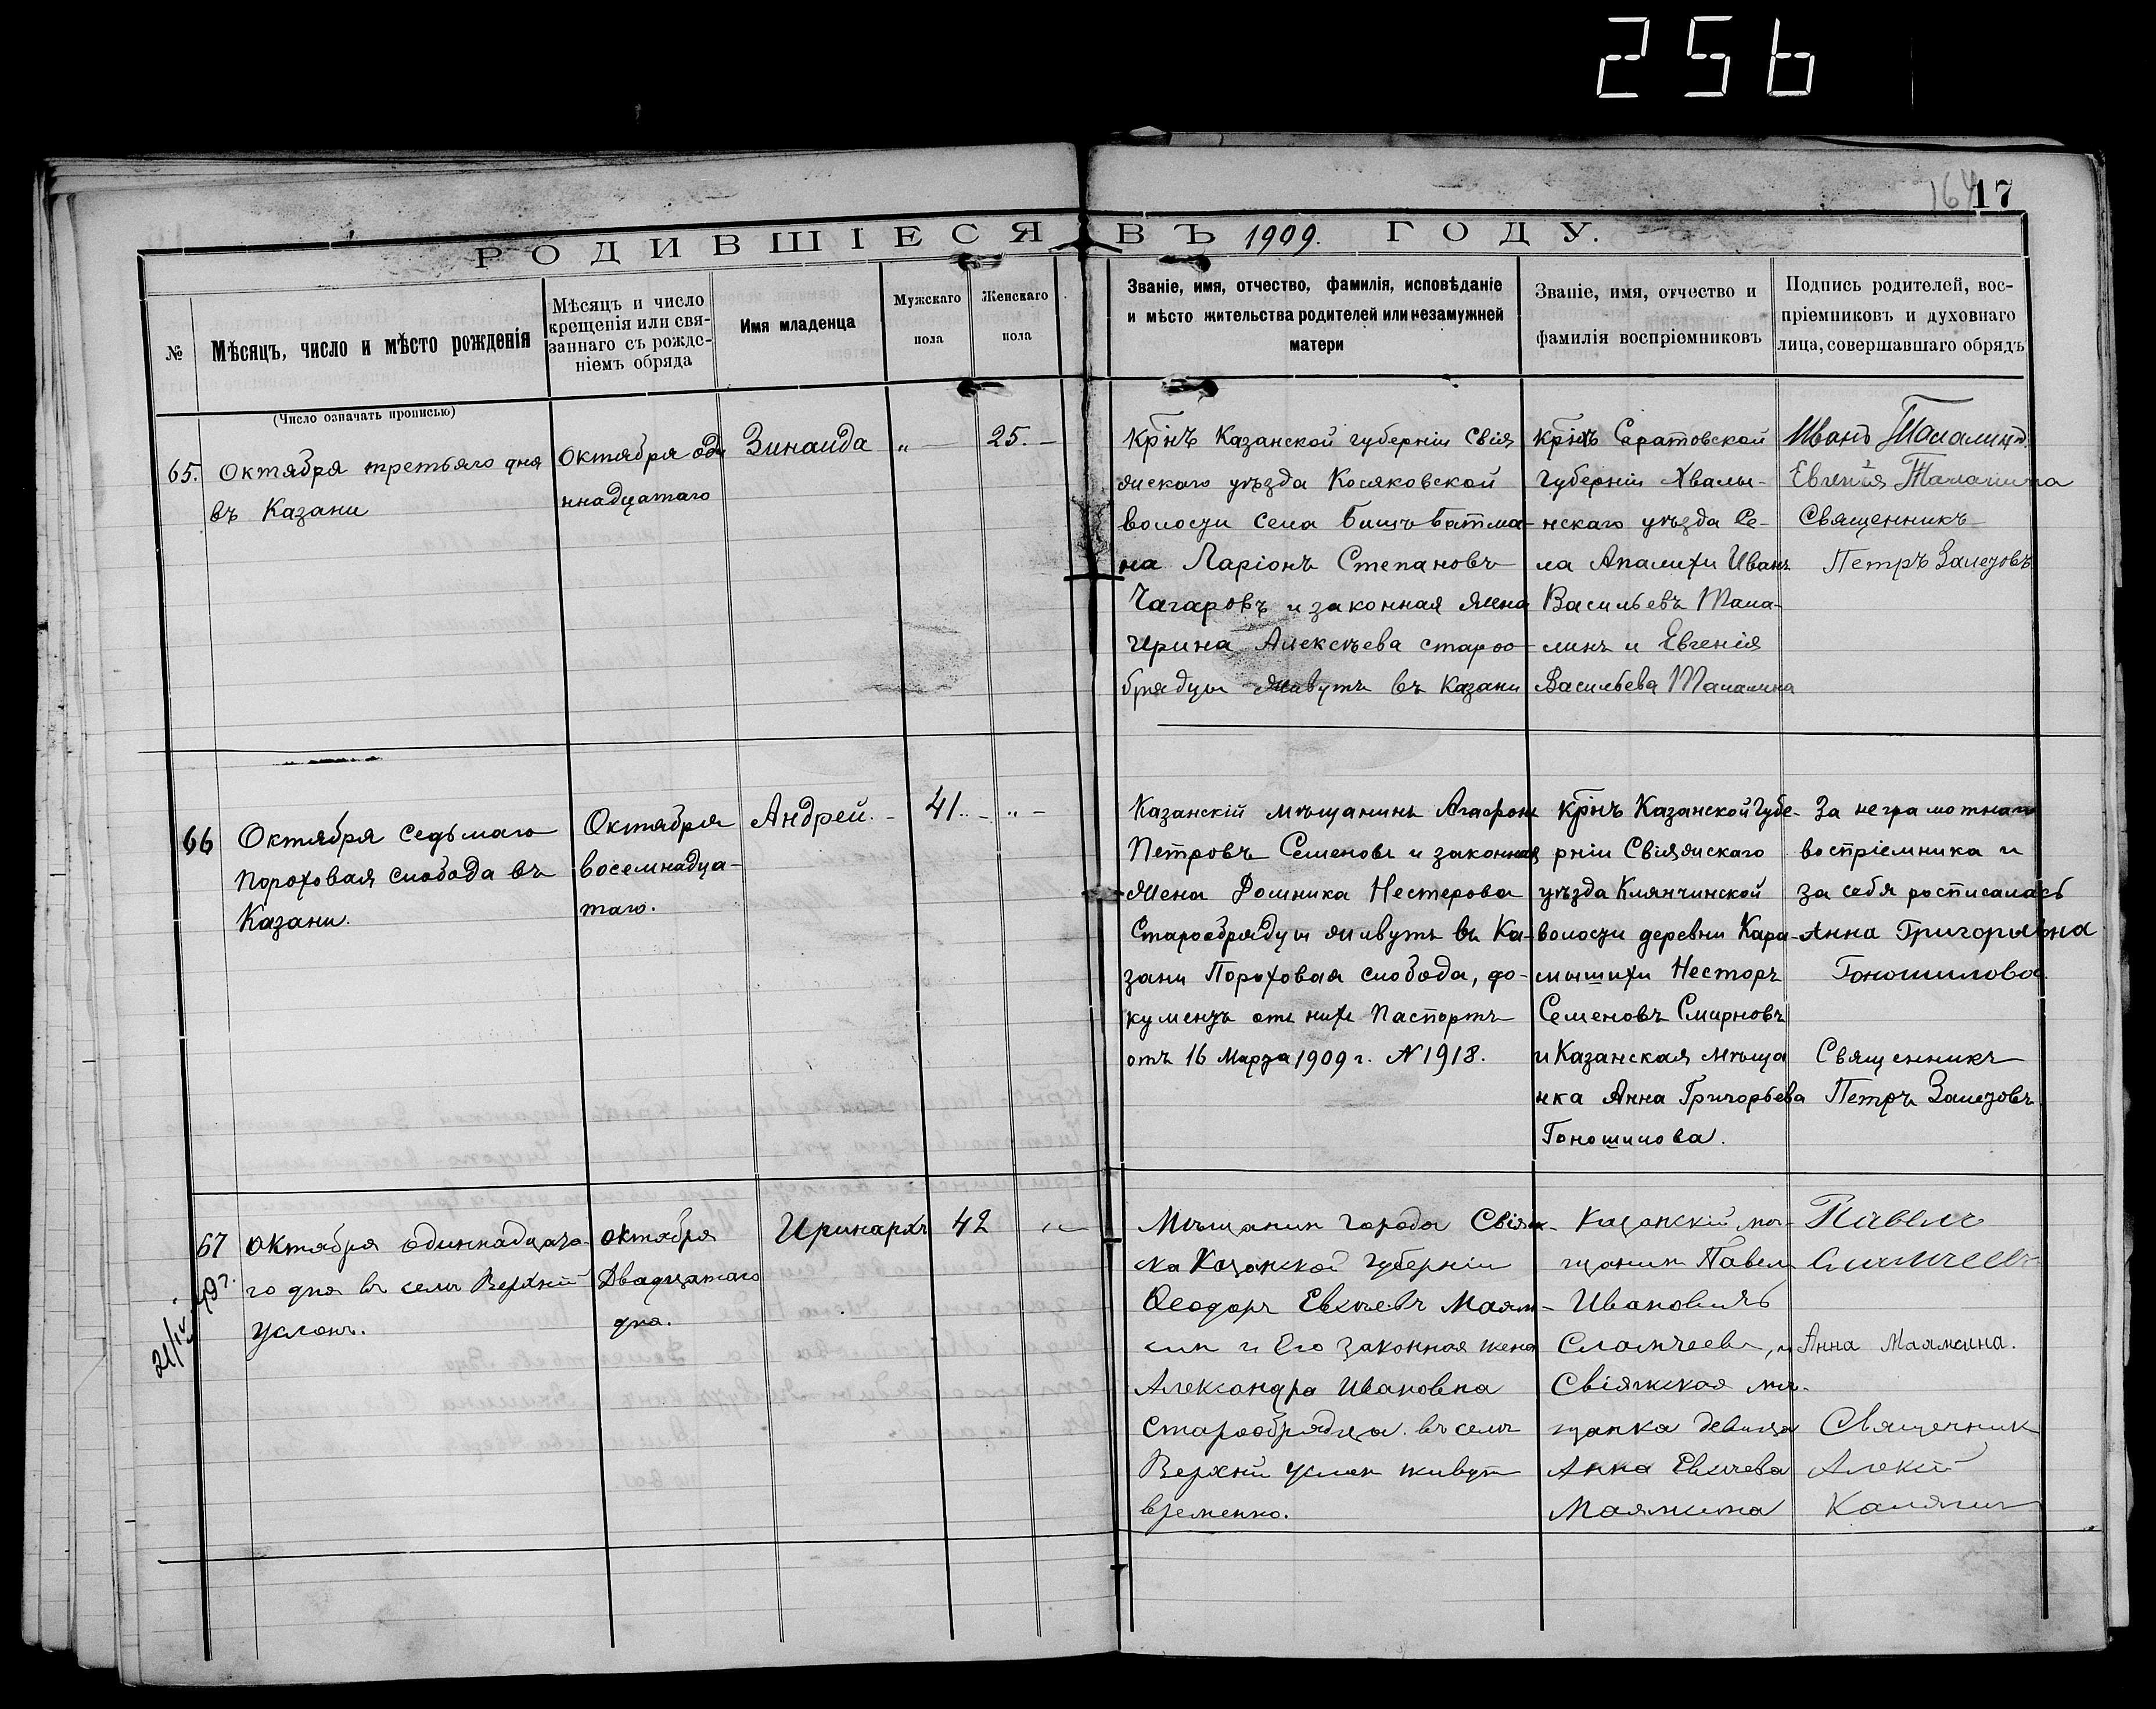 256
164
17
РОДИВШІЕСЯ ВЪ 1909. ГОДУ.
№
Мѣсяцъ, число и мѣсто рожденія
Мѣсяцъ и число
крещенія или свя-
заннаго съ рожде-
ніемъ обряда
Имя младенца
Мужскаго
пола
Женскаго
пола
Званіе, имя, отчество, фамилія, исповѣданіе
и мѣсто жительства родителей или незамужней
матери
Званіе, имя, отчество и
фамилія воспріемниковъ
Подпись родителей, вос-
пріемниковъ и духовнаго
лица, совершавшаго обрядъ
(Число означать прописью)
65.
Октября третьяго дня
въ Казани
Октября оди
ннадцатаго
Зинаида
„ —
25. —
Крінъ Казанской губерніи Свія
жскаго уѣзда Косяковской
волости села Бишъ Батма-
на Ларіонъ Степановъ
Чагаровъ и законная жена
Ирина Алексѣева староо-
брядцы живутъ въ Казани
Крінъ Саратовской
Губерніи Хвалы-
нскаго уѣзда Се-
ла Апалихи Иванъ
Васильевъ Тала-
линъ и Евгенія
Васильева Талалина
Иванъ Талалинъ
Евгенія Талалина
Священникъ
Петръ Залетовъ
66
Октября седьмаго
Пороховая слобода въ
Казани.
Октября
восемнадца-
таго.
Андрей. -
41.. -
„ -
Казанскій мѣщанинъ Агафонъ
Петровъ Семеновъ и законная
жена Домника Нестерова
Старообрядцы живутъ въ Ка-
зани Пороховая слобода, до-
кументъ отъ нихъ Паспортъ
отъ 16 Марта 1909 г. N 1918.
Крінъ Казанской Губе-
рніи Свіяжскаго
уѣзда Клянчинской
волости деревни Кара-
мышихи Несторъ
Семеновъ Смирновъ
и Казанская мѣща
нка Анна Григорьева
Гоношилова.
За неграмотнаго
воспріемника и
за себя росписалась
Анна Григорьевна
Гоношилова
Священникъ
Петръ Залетовъ
67
Октября одиннадцата-
го дня въ селѣ Верхній
Услонъ.
октября
Двадцатаго
дня.
Иринархъ
42
„ —
Мѣщанин города Свіяж-
ска Казанской Губерніи
Ѳеодоръ Евсѣевъ Маям-
син и Его законная жена
Александра Ивановна
Старообрядцы. въ селѣ
Верхній Услон живутъ
временно.
Казанскій мѣ-
щанин Павел
Ивановичъ
и
Свіяжская мѣ-
щанка девица
Анна Евсѣева
Павелъ
Анна
Священник
Алексій
Калягин